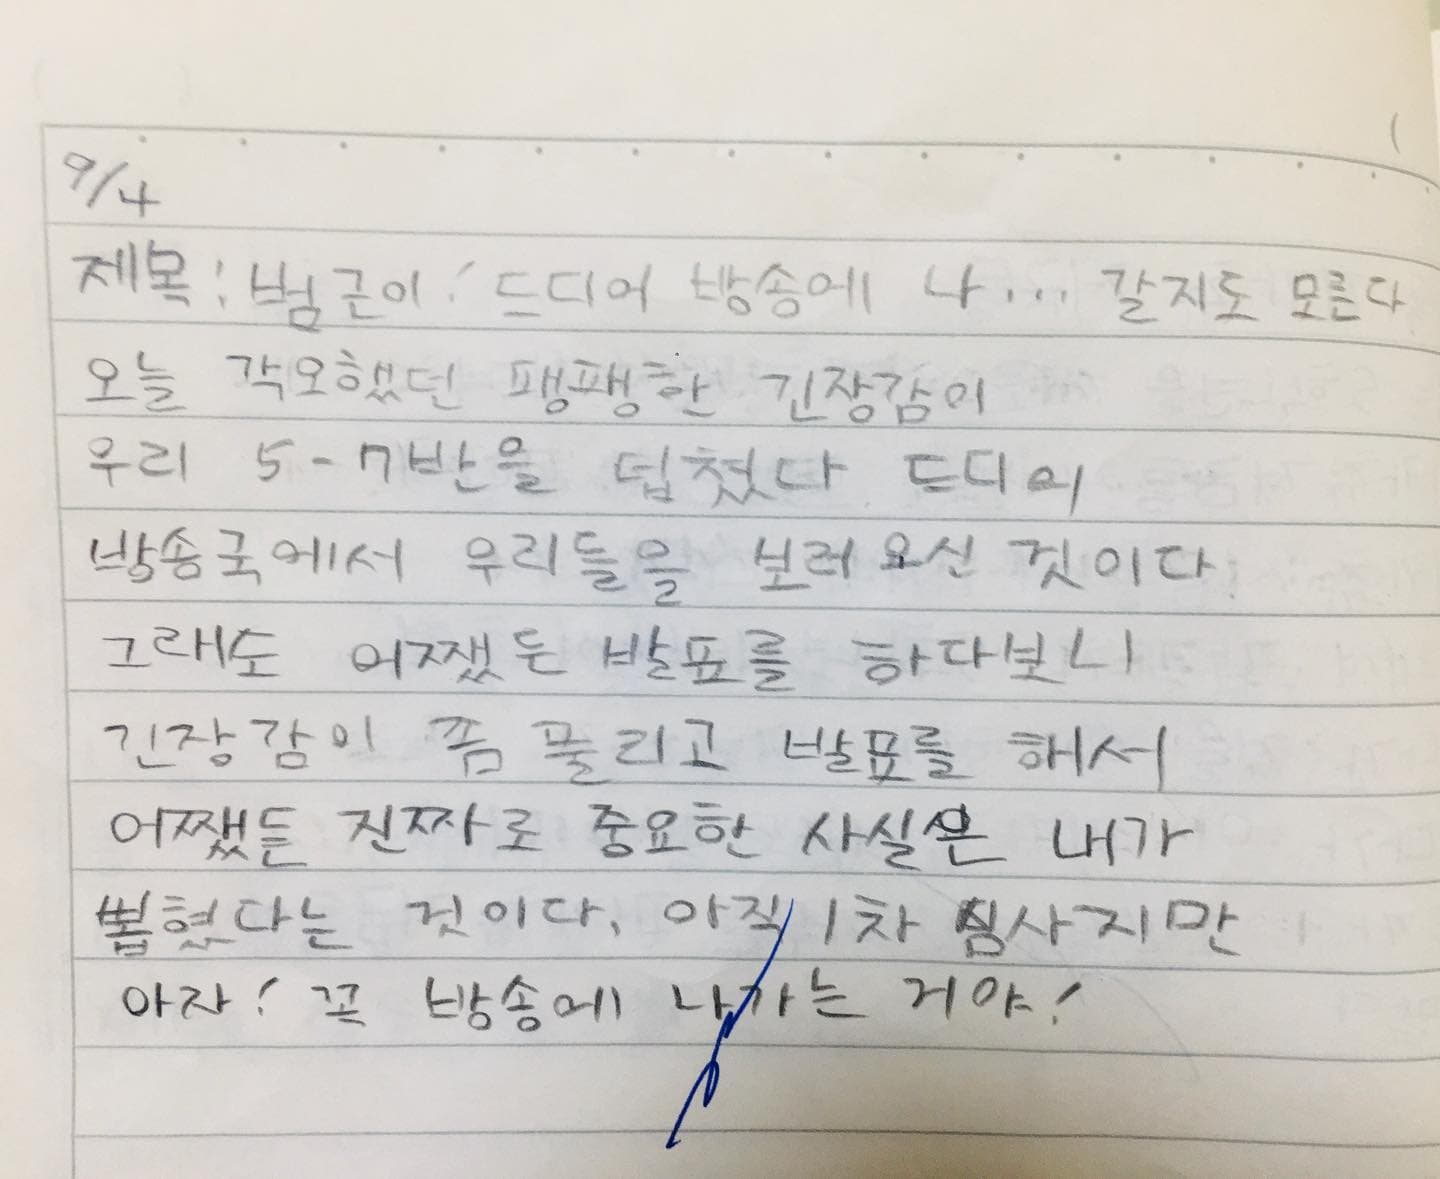 9/4
제목: 범근이! 드디어 방송에 나... 갈지도 모른다
오늘 각오했던 팽팽한 긴장감이
우리 5-7반을 덥쳤다 드디어
방송국에서 우리들을 보러 오신 것이다.
그래도 어쨌든 발표를 하다보니
긴장감이 쫌 풀리고 발표를 해서
어쨌든 진짜로 중요한 사실은 내가
뽑혔다는 것이다. 아직 1차 심사지만
아자! 꼭 방송에 나가는 거야!